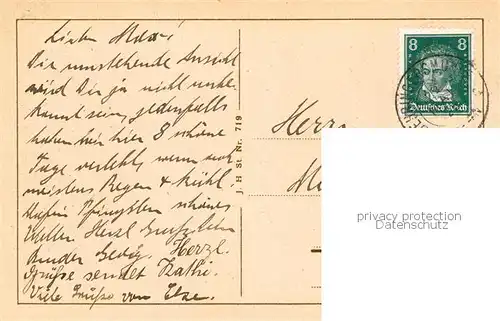 Lieber Max!
Die umstehende Ansicht
wird Dir ja nicht unbe-
kannt sein, jedenfalls
haben wir hier 8 schöne
Tage verlebt, wenn auch
meistens Regen & kühl.
Pfingsten schönes
Wetter. Herzl.
Herzl.
Grüße sendet Käthi.
Viele Grüße von Else.
J. H. St. Nr. 719
8 8
Deutsches Reich
Herrn
privacy protection
www.oldthing.de